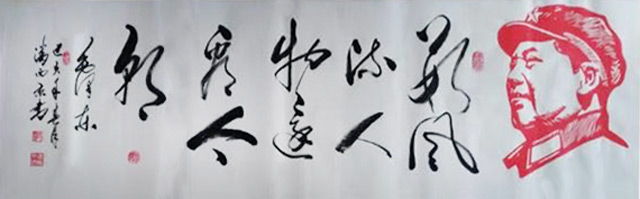 数风
流人
物还
看今
朝
毛泽东
己亥年春月